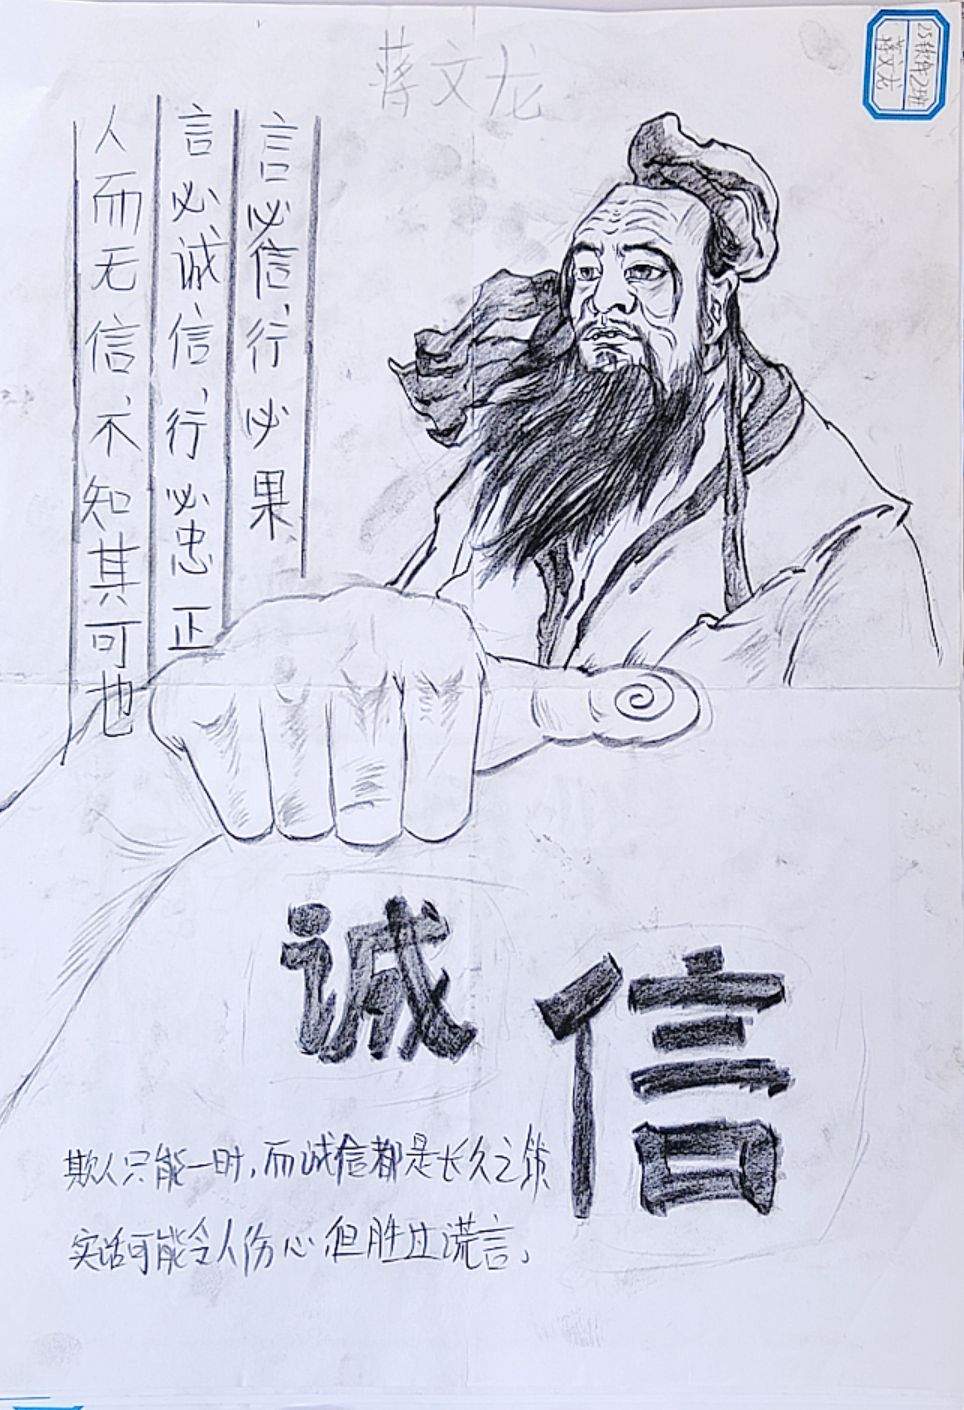 蒋文龙
25软件2班
蒋文龙
言必信,行必果
言必诚信,行必忠正
人而无信,不知其可也
诚信
欺人只能一时,而诚信都是长久之策
实话可能令人伤心但胜过谎言。